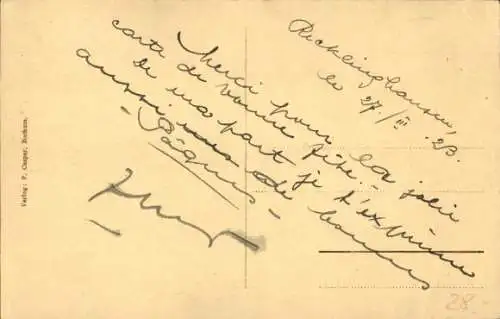 Recklinghausen,
le 27/III 23.
Merci pour la jolie
carte de bonne fête.
De ma part je t'exprime
aussi mes de bonnes
- Pâques -
Verlag: P. Casper, Bochum.
28